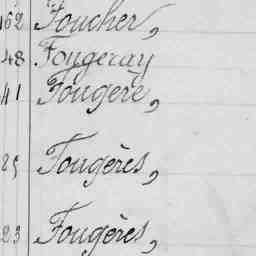 162 Foucher,
48 Fougeray
41 Fougère,
25 Fougères,
23 Fougères,